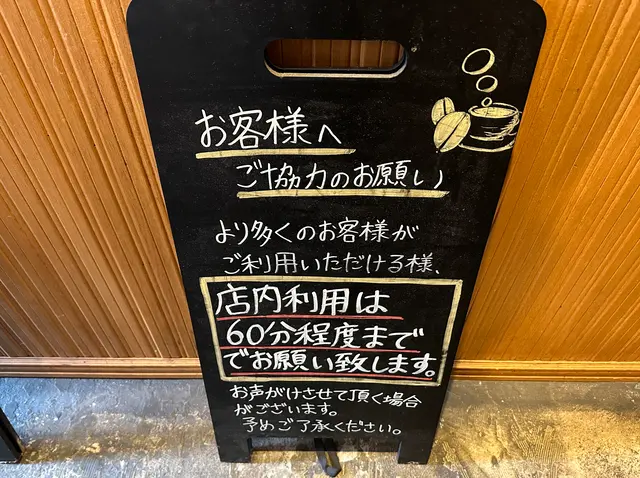 お客様へ
ご協力のお願い
より多くのお客様が
ご利用いただける様、
店内利用は
60分程度まで
でお願い致します。
お声がけさせて頂く場合
がございます。
予めご了承ください。